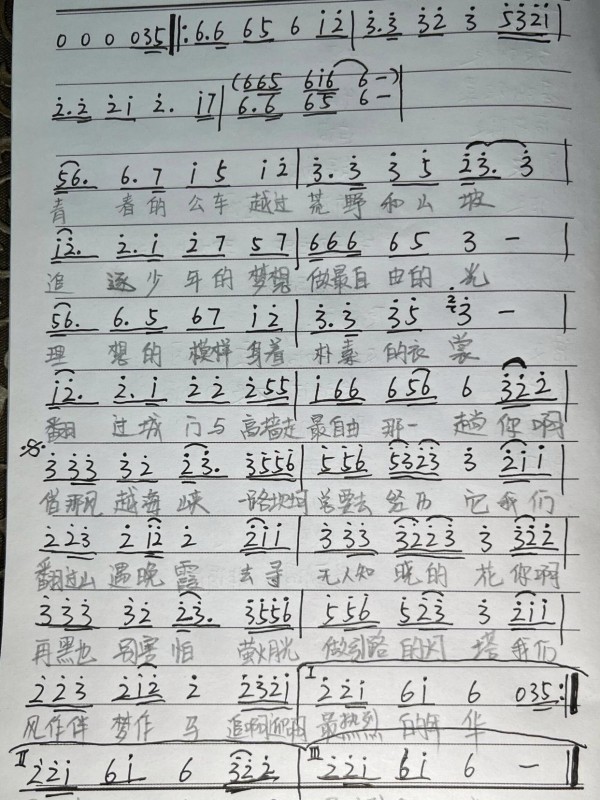 0 0 0 035 ‖: 6.6 65 6 12 | 3.3 32 3 5321
2.2 21 2. 17 | (665 616 6 –)
6.6 65 6 – |
56. 6.7 1 5 12 | 3.3 3 5 23. 3
青 春的 公车 越过 荒 野 和 山 坡
12. 2.1 2 7 5 7 | 666 65 3 –
追 逐 少 年 的 梦想 做最自 由的 光
56. 6.5 67 12 | 3.3 35 2 3 –
理 想的 模样 身着 朴素 的衣 裳
12. 2.1 22 255 | 166 656 6 322
翻 过城 门与 高墙走 最自由 那一 趟 你啊
𝄋 3 33 32 23. 3556 | 556 5323 3 211
借那风 越海 峡 一路坎坷 总要去 经历 它 我们
223 212 2 211 | 333 3223 3 322
翻过山 遇晚 霞 去寻 无人知 晓的 花 你啊
333 32 23. 3556 | 556 523 3 211
再黑也 别害 怕 萤火月光 做引路 的灯 塔 我们
223 212 2 2321 | I 2 21 61 6 035 :‖
风作伴 梦作 马 最热烈 的年 华
II 221 61 6 322 | III 221 61 6 – ‖